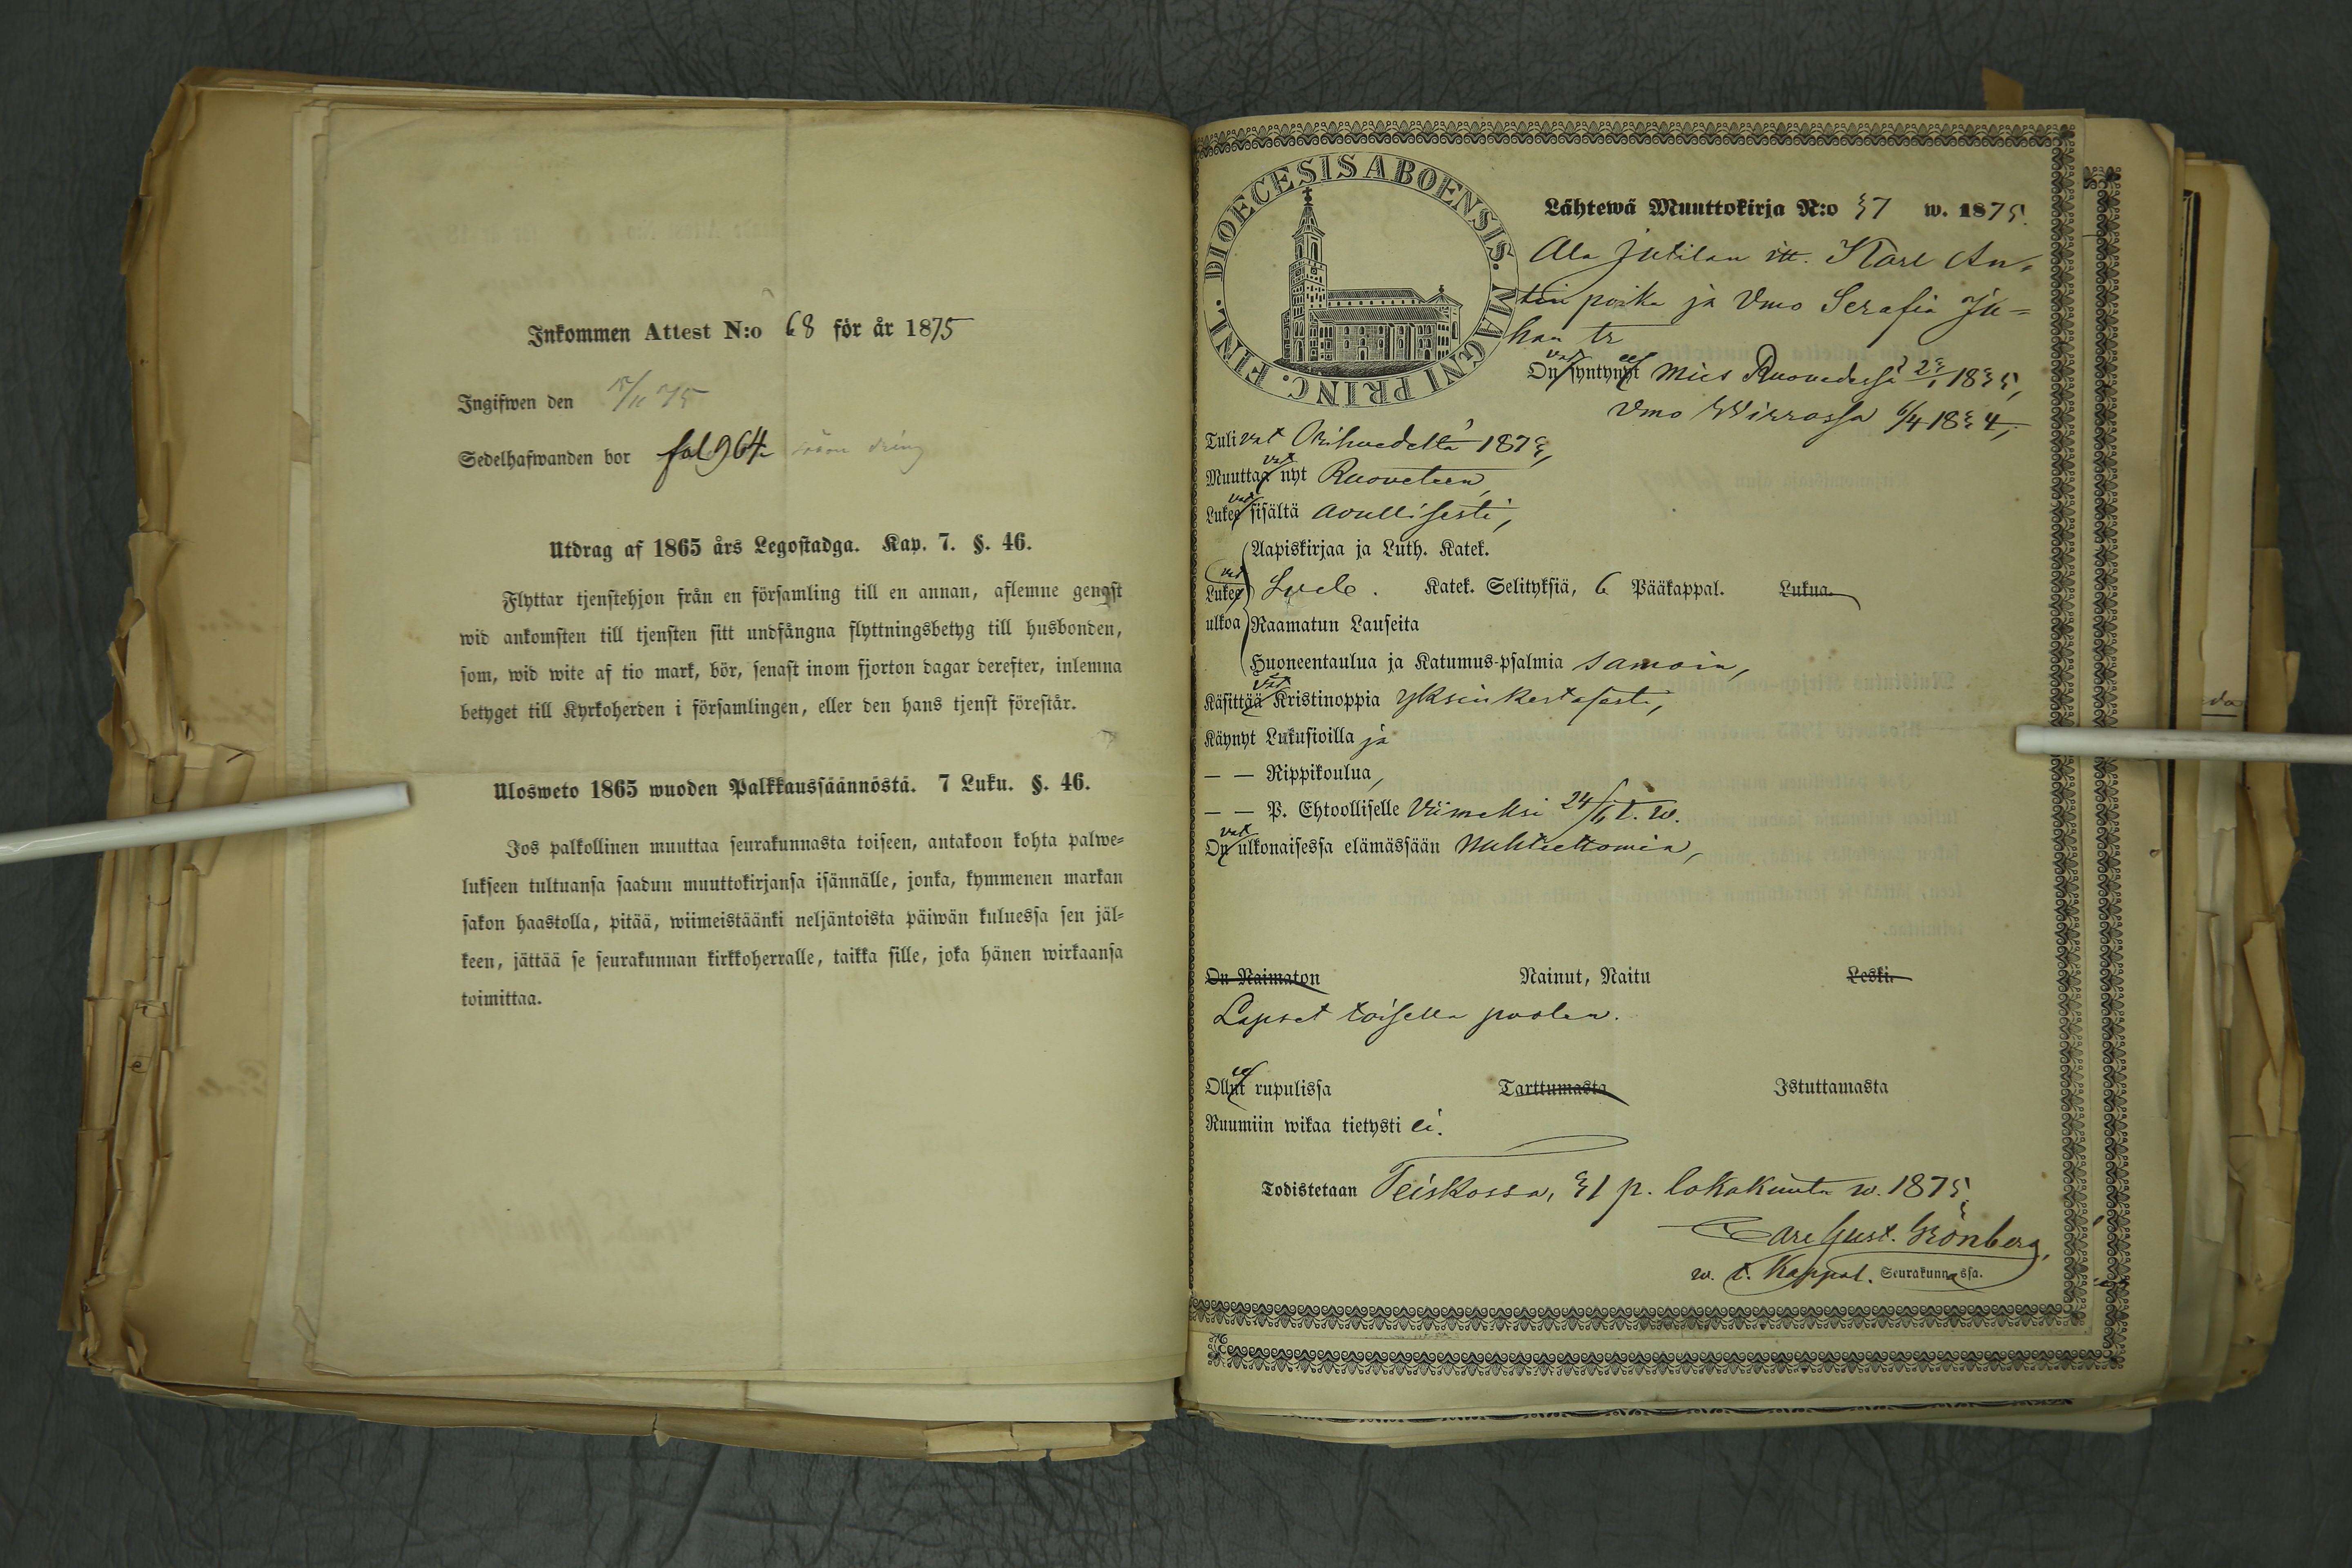 Inkommen Attest N:o 68 för år 1875
Ingifwen den
Sedelhafwanden bor fol 964
Utdrag af 1865 års Legostadga. Kap. 7. §. 46.
Flyttar tjenstehjon från en församling till en annan, aflemne genast
wid ankomsten till tjensten sitt undfångna flyttningsbetyg till husbonden,
som, wid wite af tio mark, bör, senast inom fjorton dagar derefter, inlemna
betyget till Kyrkoherden i församlingen, eller den hans tjenst förestår.
Ulosweto 1865 wuoden Palkkaussäännöstä. 7 Luku. §. 46.
Jos palkollinen muuttaa seurakunnasta toiseen, antakoon kohta palwe=
lukseen tultuansa saadun muuttokirjansa isännälle, jonka, kymmenen markan
sakon haastolla, pitää, wiimeistäänki neljäntoista päiwän kuluessa sen jäl=
keen, jättää se seurakunnan kirkkoherralle, taikka sille, joka hänen wirkaansa
toimittaa.
DIOECESIS ABOENSIS. MAGNI PRINC. FINL.
Lähtewä Muuttokirja N:o 37 w. 1875.
Ala Jutilan itt. Karl An=
tin poika ja Vmo Serafia Ju=
han tr
On vat syntynyt eet Mies Ruovedessä 1835,
Vmo Wirroissa 6/4 1834,
Tulivat Orihvedeltä 1873,
Muuttaa vat nyt Ruoveteen,
Lukee vat sisältä avullisesti,
Aapiskirjaa ja Luth. Katek.
Lukee vat Katek. Selityksiä, 6 Pääkappal. Lukua.
ulkoa Raamatun Lauseita
Huoneentaulua ja Katumus-psalmia samoin,
Käsittää vät Kristinoppia yksinkertasesti,
Käynyt Lukusioilla ja
— — Rippikoulua,
— — P. Ehtoolliselle Viimeksi 24/6 t. w.
On vat ulkonaisessa elämässään Nuhteettomia,
On Naimaton Nainut, Naitu Leski.
Lapset toisella puolen.
Ollut rupulissa Tarttumasta Istuttamasta
Ruumiin wikaa tietysti ei.
Todistetaan Teiskossa, 31 p. lokakuuta w. 1875
Carl Gust. Grönberg,
w. t. Kappal. Seurakunnassa.